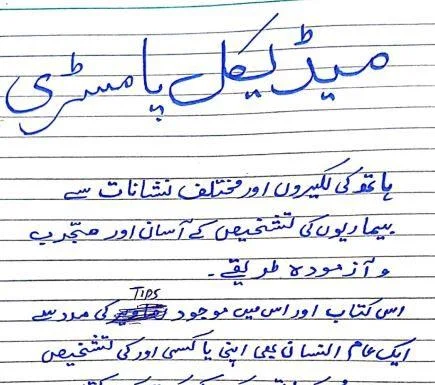 میڈیکل پامسٹری
ہاتھ کی لکیروں اور مختلف نشانات سے
بیماریوں کی تشخیص کے آسان اور مجرب
و آزمودہ طریقے۔
TIPS
اس کتاب اور اس میں موجود کی مدد سے
ایک عام انسان بھی اپنی یا کسی اور کی تشخیص